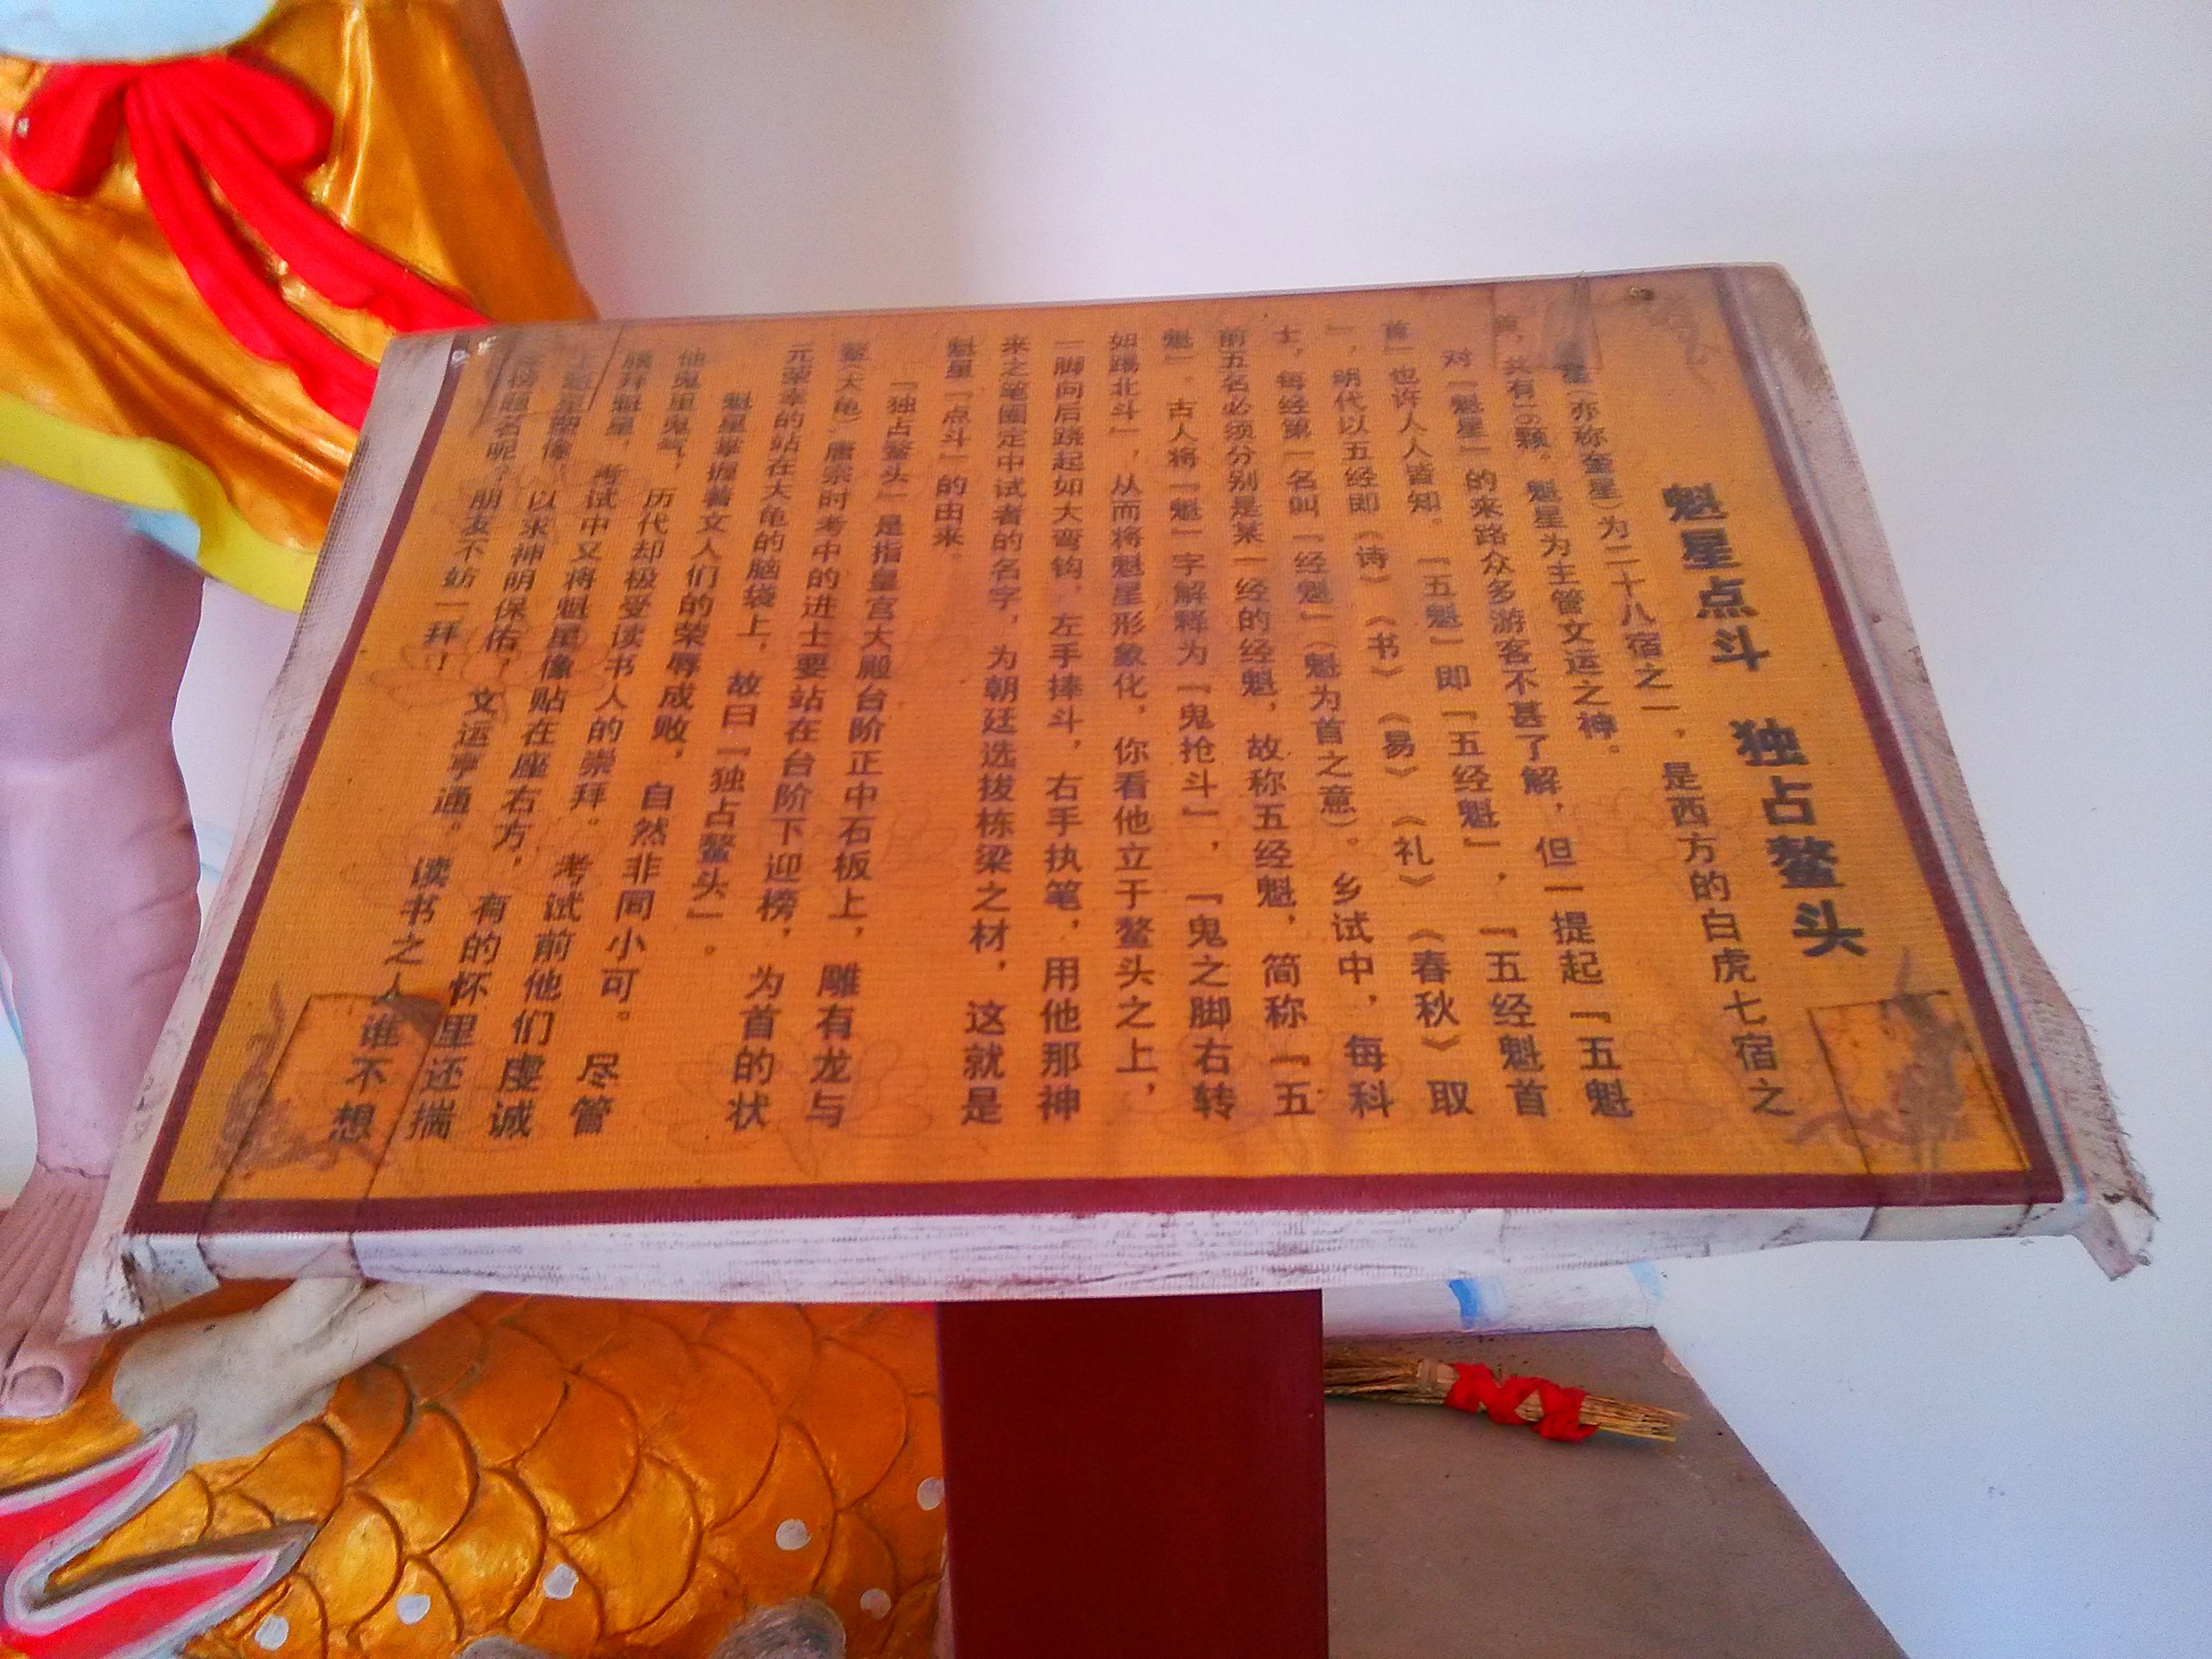 魁星点斗 独占鳌头
星(亦称奎星)为二十八宿之一，是西方的白虎七宿之
，共有16颗。魁星为主管文运之神。
对『魁星』的来路众多游客不甚了解，但一提起『五魁
首』也许人人皆知。『五魁』即『五经魁』，『五经魁首
』，明代以五经即《诗》《书》《易》《礼》《春秋》取
士，每经第一名叫『经魁』(魁为首之意)。乡试中，每科
前五名必须分别是某一经的经魁，故称五经魁，简称『五
魁』。古人将『魁』字解释为『鬼抢斗』，『鬼之脚右转
如踢北斗』，从而将魁星形象化，你看他立于鳌头之上，
一脚向后跷起如大弯钩，左手捧斗，右手执笔，用他那神
来之笔圈定中试者的名字，为朝廷选拔栋梁之材，这就是
魁星『点斗』的由来。
『独占鳌头』是指皇宫大殿台阶正中石板上，雕有龙与
鳌(大龟)唐宗时考中的进士要站在台阶下迎榜，为首的状
元荣幸的站在大龟的脑袋上，故曰『独占鳌头』。
魁星掌握着文人们的荣辱成败，自然非同小可。尽管
他鬼里鬼气，历代却极受读书人的崇拜。考试前他们虔诚
膜拜魁星，考试中又将魁星像贴在座右方，有的怀里还揣
上魁星塑像，以求神明保佑，文运亨通。读书之人谁不想
榜题名呢？朋友不妨一拜！